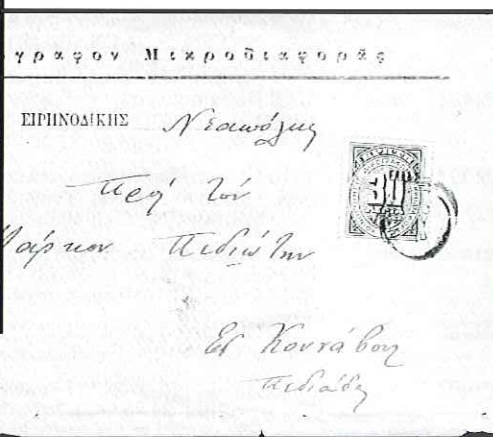 γραφον Μικροδιαφοράς
ΕΙΡΗΝΟΔΙΚΗΣ Νεαπόλεως
Πρός τόν
Μάρκον Πεδιώτην
Εἰς Κουνάβους
Πεδιάδος